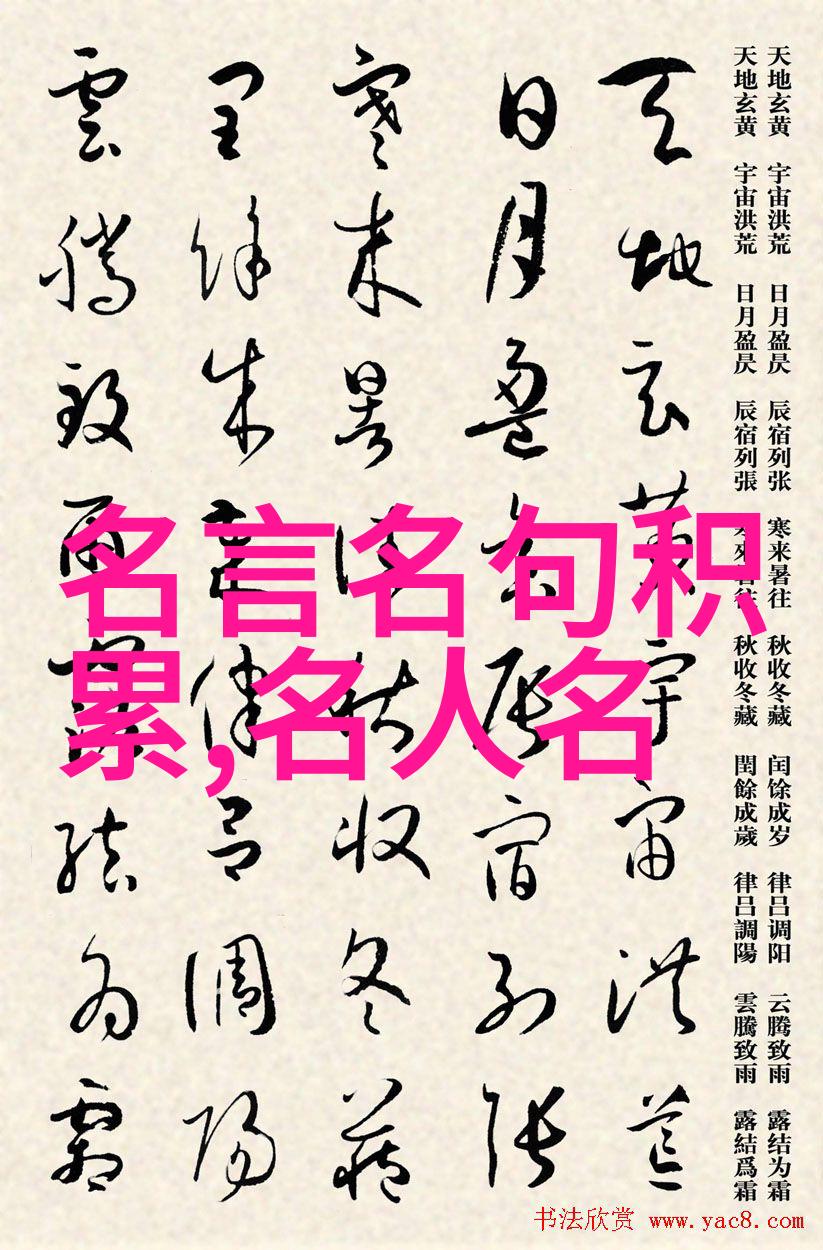 天地玄黄 宇宙洪荒 日月盈昃 辰宿列张 寒来暑往 秋收冬藏 闰馀成岁 律吕调阳 云腾致雨 露结为霜
天地玄黄 宇宙洪荒 日月盈昃 辰宿列張 寒來暑往 秋收冬藏 閏餘成歲 律吕調陽 雲騰致雨 露結爲霜
天地玄黄宇宙洪荒
日月盈昃辰宿列張
寒来暑往秋收冬藏
閏餘成歲律吕調陽
雲騰致雨露結為霜
名言名句积
累,名人名
书法欣赏 www.yac8.com